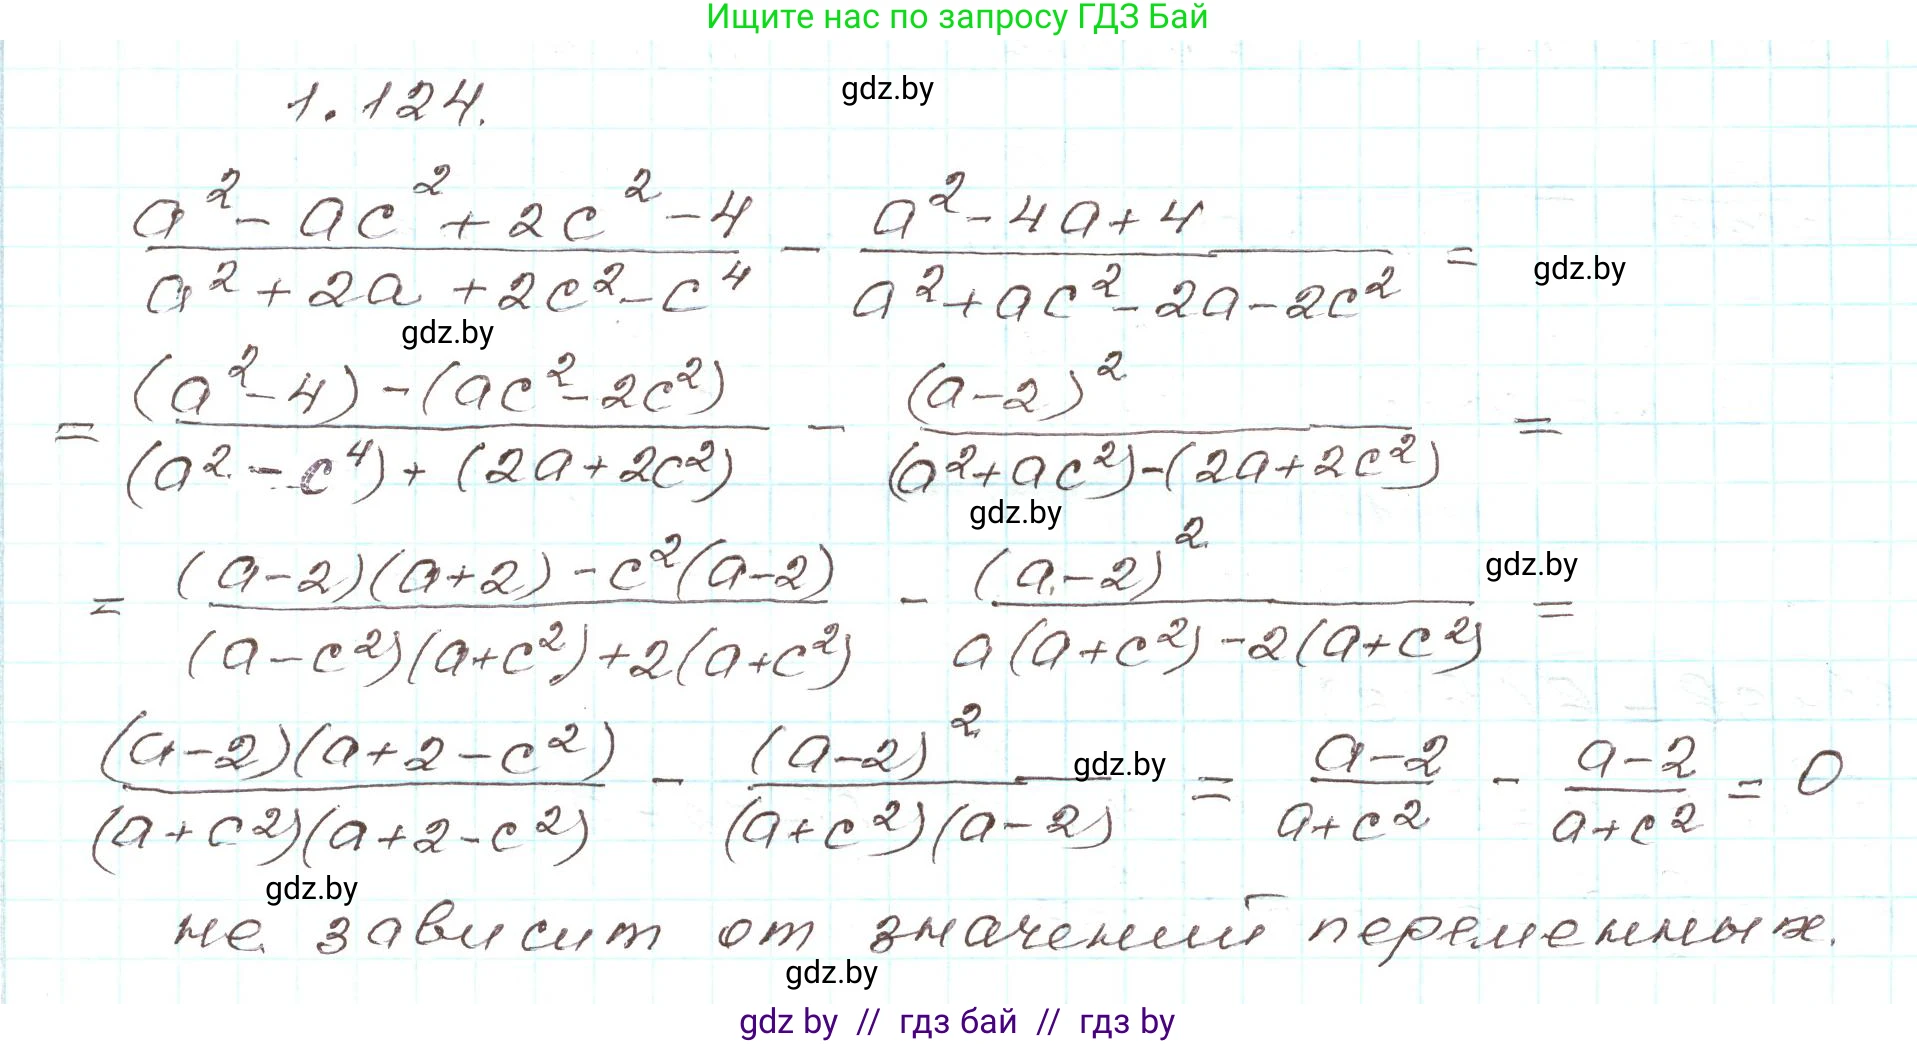 Ищите нас по запросу ГДЗ Бай
1.124.
gdz.by
(a² - ac² + 2c² - 4)/(a² + 2a + 2c² - c⁴) - (a² - 4a + 4)/(a² + ac² - 2a - 2c²) =
gdz.by
gdz.by
= ((a² - 4) - (ac² - 2c²))/((a² - c⁴) + (2a + 2c²)) - (a - 2)²/((a² + ac²) - (2a + 2c²)) =
gdz.by
gdz.by
= ((a - 2)(a + 2) - c²(a - 2))/((a - c²)(a + c²) + 2(a + c²)) - (a - 2)²/(a(a + c²) - 2(a + c²)) =
((a - 2)(a + 2 - c²))/((a + c²)(a + 2 - c²)) - (a - 2)²/((a + c²)(a - 2)) = (a - 2)/(a + c²) - (a - 2)/(a + c²) = 0
gdz.by
gdz.by
не зависит от значений переменных.
gdz.by
gdz by // гдз бай // гдз by